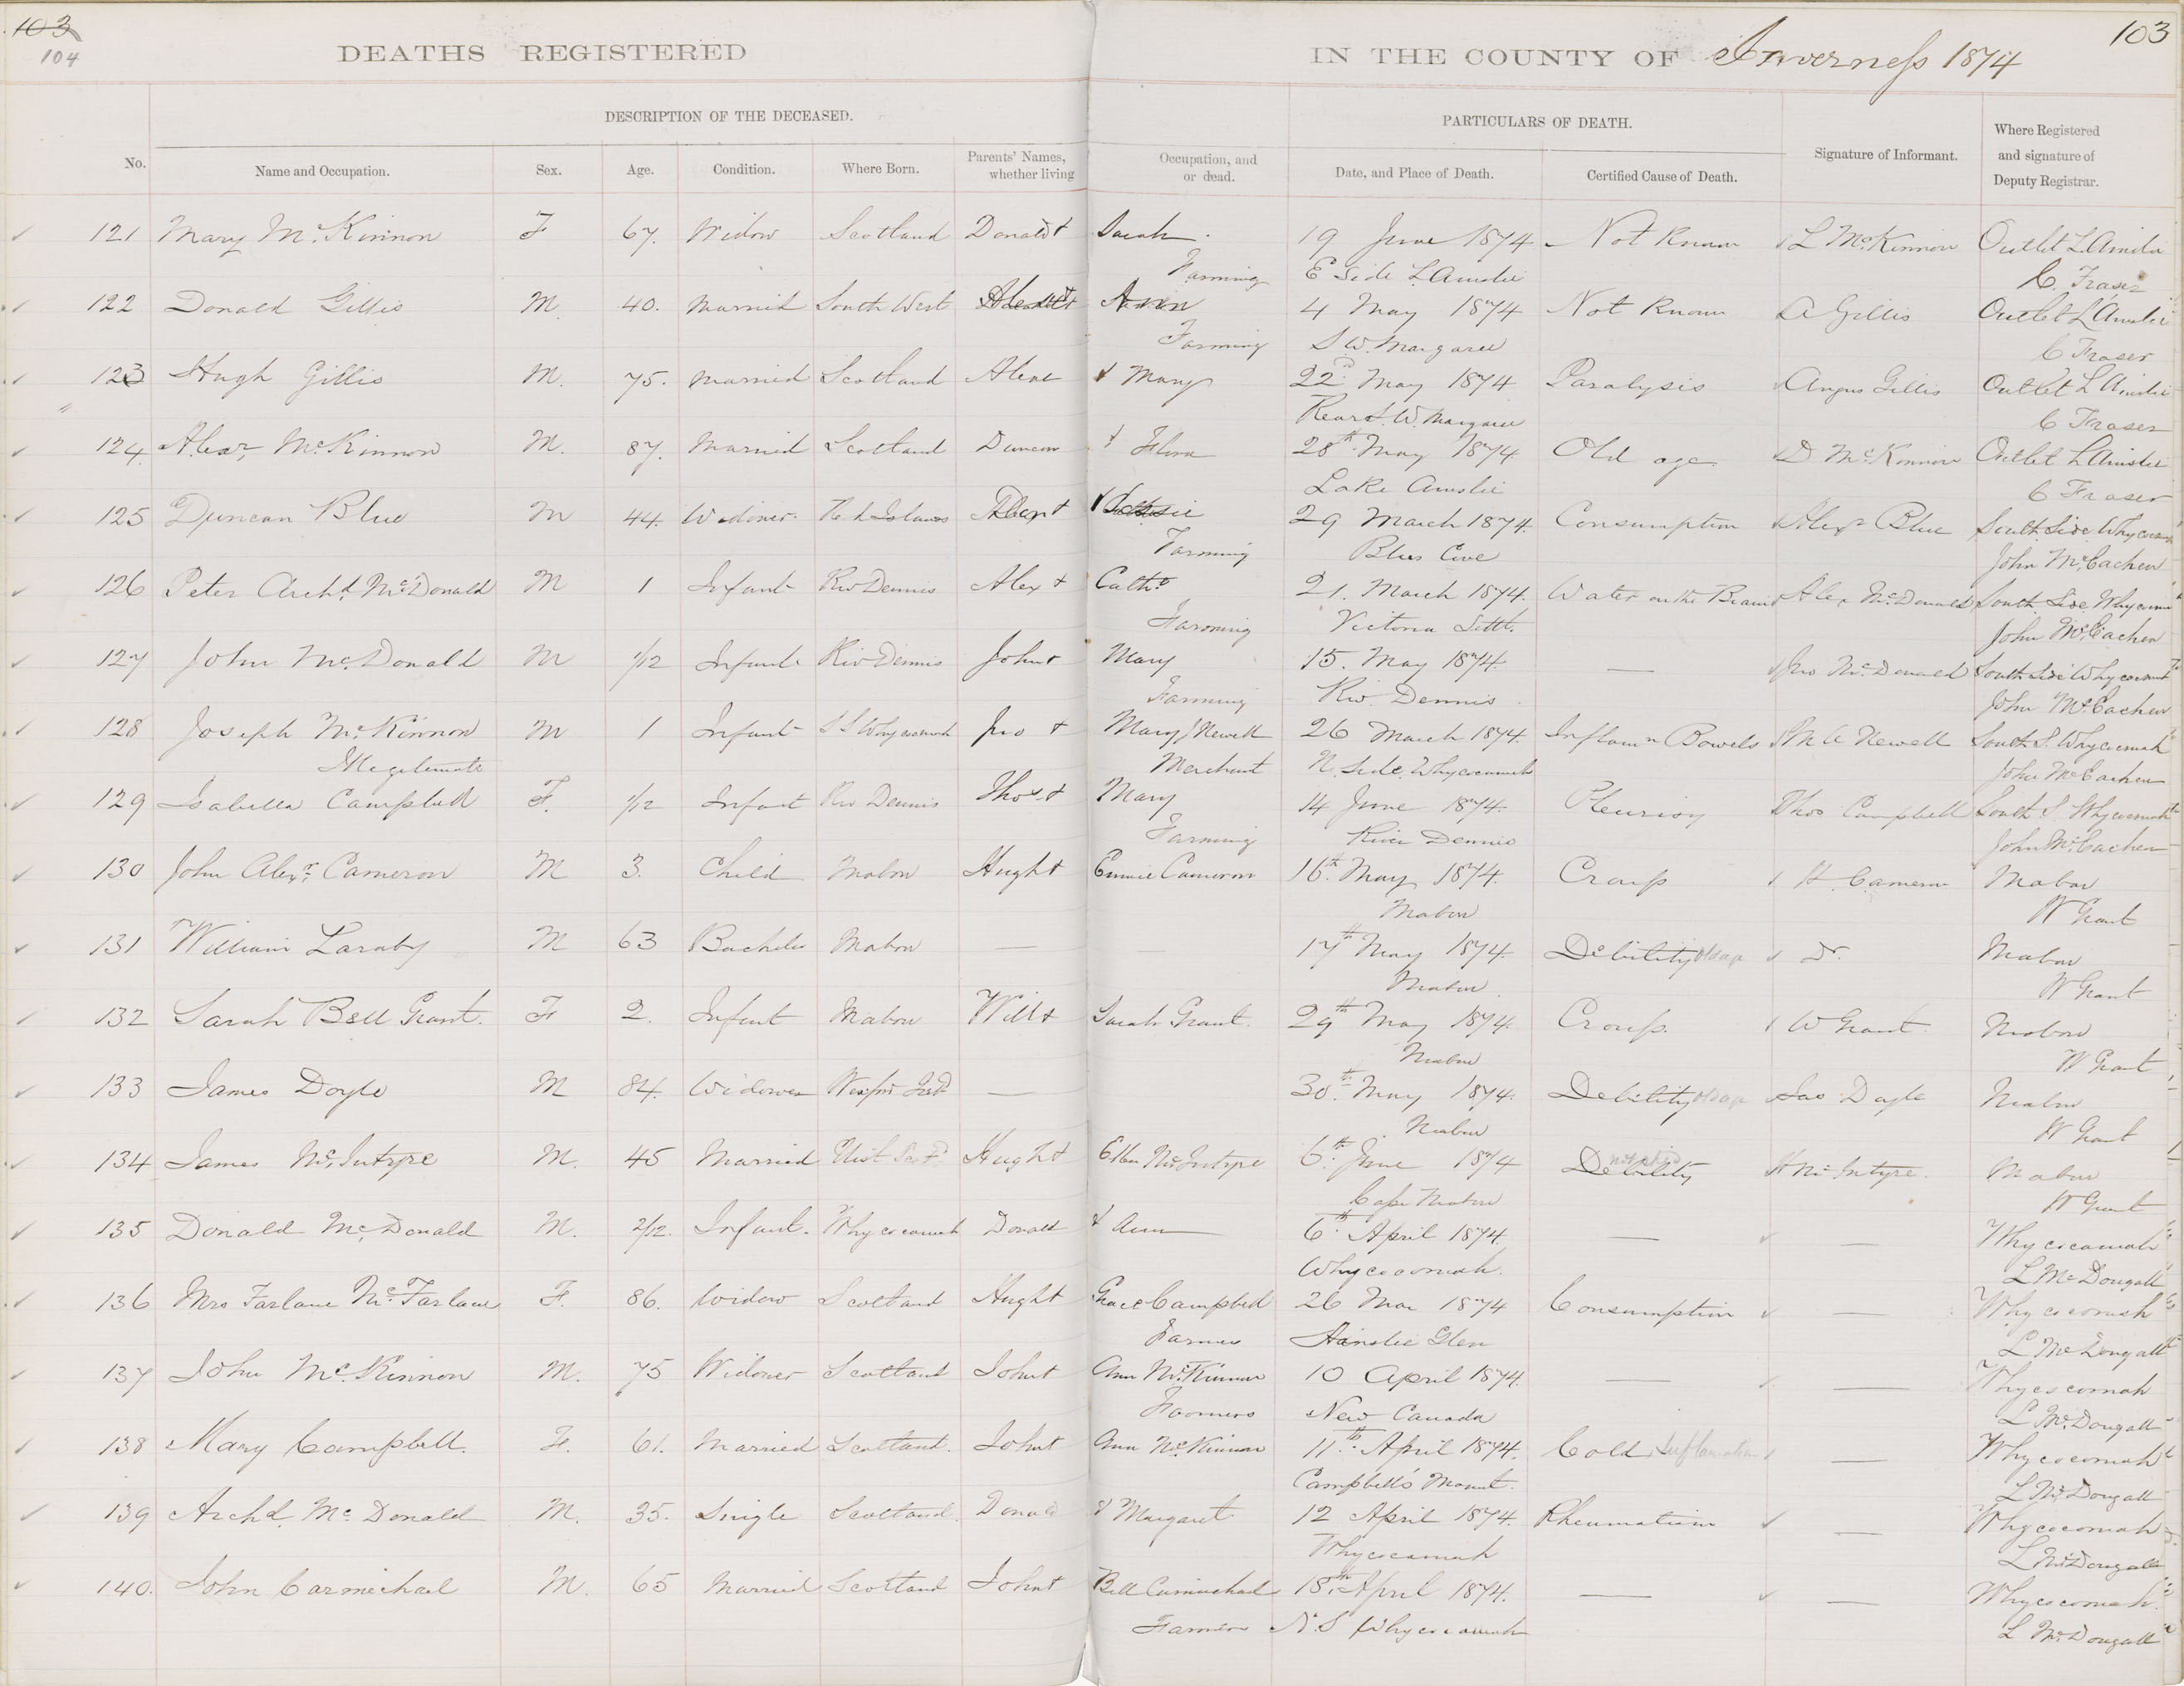 103
104
DEATHS REGISTERED IN THE COUNTY OF Inverness 1874 103
DESCRIPTION OF THE DECEASED. PARTICULARS OF DEATH.
No. Name and Occupation. Sex. Age. Condition. Where Born. Parents' Names, whether living Occupation, and or dead. Date, and Place of Death. Certified Cause of Death. Signature of Informant. Where Registered and signature of Deputy Registrar.
121 Mary McKinnon F 67. Widow Scotland Donald & Sarah 19 June 1874 Not Known L McKinnon Outlet L Ainslie
Farming E Side L Ainslie C. Fraser
122 Donald Gillis M 40. Married South West 4 May 1874 Not Known A Gillis Outlet L Ainslie
Farming S W. Margaree C Fraser
123 Hugh Gillis M. 75. Married Scotland & Mary 22d May 1874 Paralysis Angus Gillis Outlet L Ainslie
Rear S. W. Margaree C Fraser
124 Alexr McKinnon M. 87. Married Scotland Duncan & Flora 28th May 1874 Old age D McKinnon Outlet L Ainslie
Lake Ainslie C Fraser
125 Duncan Blue M 44. Widower 29 March 1874. Consumption Alexr Blue South Side
Farming Blues Cove John McEachen
126 Peter Archd. McDonald M 1 Infant Riv Dennis Alex & Cathe 21. March 1874. Water on the Brain Alex McDonald South Side
Farming Victoria Settl. John McEachen
127 John McDonald M 1/12 Infant Riv Dennis John & Mary 15. May 1874. — Jno McDonald South Side
Farming Riv. Dennis John McEachen
128 Joseph McKinnon M 1 Infant S S Whycocomah Jno & Mary J Newell 26 March 1874. Inflamn Bowels M A Newell South S. Whycocomah
Illegitimate Merchant N. Side. Whycocomah John McEachen
129 Isabella Campbell F. 1/12 Infant Riv Dennis Thos & Mary 14 June 1874. Pleurisy Thos Campbell South S Whycocomah
Farming River Dennis John McEachen
130 John Alexr. Cameron M 3. Child Mabou Hugh & Cameron 16th May 1874. Croup H Cameron Mabou
Mabou W Grant
131 William Laraby M 63 Bachelor Mabou — 17th May 1874. Debility Dr. Mabou
Mabou W Grant
132 Sarah Bell Grant. F 2. Infant Mabou Will & Sarah Grant. 29th May 1874. Croup. W Grant Mabou
Mabou W Grant
133 James Doyle M 84. Widower — 30th May 1874. Debility Jas Doyle Mabou
Mabou W Grant
134 James McIntyre M. 45 Married Uist Scotd Hugh & Ellen McIntyre 6th June 1874 Debility H McIntyre. Mabou
Cape Mabou W Grant
135 Donald McDonald M. 2/12. Infant. Whycocomah Donald & Ann 6th April 1874. — — Whycocomah
Whycocomah. L McDougall
136 Mrs Farlane McFarlane F. 86. Widow Scotland Hugh & Grace Campbell 26 Mar 1874 Consumption — Whycocomah
Farmer Ainslie Glen L McDougall
137 John McKinnon M. 75 Widower Scotland John & Ann McKinnon 10 April 1874. — — Whycocomah
Farmers New Canada L McDougall
138 Mary Campbell. F. 61. Married Scotland. John & Ann McKinnon 11th April 1874. Cold Inflamation — Whycocomah
Campbell's Mount. L McDougall
139 Archd. McDonald M. 35. Single Scotland. Donald & Margaret 12 April 1874. Rheumatism — Whycocomah
Whycocomah L McDougall
140. John Carmichael M. 65 Married Scotland John & Bell Carmichael 18th April 1874. — — Whycocomah.
Farmer N. S Whycocomah L McDougall